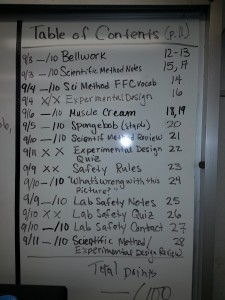 Table of Contents (p.11)
9/3 —/10 Bellwork 12-13
9/3 —/10 Scientific Method Notes 15, 17
9/4 —/10 Sci Method FFC vocab 14
9/4 XX Experimental Design 16
9/6 —/10 Muscle Cream 18, 19
9/5 —/10 Spongebob (staple) 20
9/10 —/10 Scientific Method Review 21
9/11 XX Experimental Design Quiz 22
9/9 XX Safety Rules 23
9/10 —/10 "What's wrong with this Picture?" 24
9/9 —/10 Lab Safety Notes 25
9/10 XX Lab Safety Quiz 26
9/10 —/10 Lab Safety Contract 27
9/11 —/10 Scientific Method/ 28
Experimental Design Review
Total points
—/100